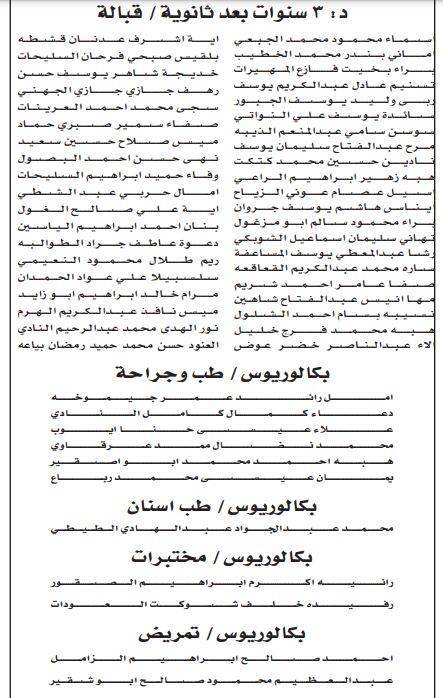 د: ٣ سنوات بعد ثانوية / قبالة
اسماء محمود محمد الجبعي
اماني بندر محمد الخطيب
براء بخيت فازع المهيرات
تسنيم عادل عبدالكريم يوسف
ربى وليد يوسف الجبور
ساندة يوسف علي النواتي
سوسن سامي عبدالمنعم الذيبه
مرح عبدالفتاح سليمان يوسف
نادين حسين محمد كتكت
هبه زهير ابراهيم الراعي
اسيل عصام عوني الزياح
ايناس هاشم يوسف جروان
براء محمود سالم ابو مزغول
تهاني سليمان اسماعيل الشوبكي
رشا عبدالمعطي يوسف المساعفة
ساره محمد عبدالكريم القعاقعه
صفا عامر احمد شريم
مها انيس عبدالفتاح شاهين
نسيبه بسام احمد الشلول
هبه محمد فرج خليل
الاء عبدالناصر خضر عوض
اية اشرف عدنان قشطه
بلقيس صبحي فرحان السليحات
خديجة شاهر يوسف حسن
رهف جازي جازي الجهني
سجى محمد احمد العرينات
صفاء سمير صبري حماد
ميس صلاح حسين سعيد
نهى حسن احمد البصول
وفاء حميد ابراهيم السليحات
امال حربي عبد الشطي
اية علي صالح الغول
بنان احمد ابراهيم الياسين
دعوة عاطف جراد الطوالبه
ريم طلال محمود النعيمي
سلسبيلا علي عواد الحمدان
مرام خالد ابراهيم ابو زايد
ميس نافذ عبدالكريم الهرم
نور الهدى محمد عبدالرحيم النادي
العنود حسن محمد حميد رمضان بياعه
بكالوريوس / طب وجراحة
امل رائد عمر جيموخه
دعاء كمال كامل النادي
علاء عيسى حنا ايوب
محمد نضال ممد عرقاوي
هبه احمد محمد ابو اصقير
يمان عيسى محمد رباع
بكالوريوس / طب اسنان
محمد عبدالجواد عبدالهادي الطيطي
بكالوريوس / مختبرات
رانيه اكرم ابراهيم الصقور
رفيده خلف شوكت العودات
بكالوريوس / تمريض
احمد صالح ابراهيم الزامل
عبدالعظيم محمود صالح ابو شقير